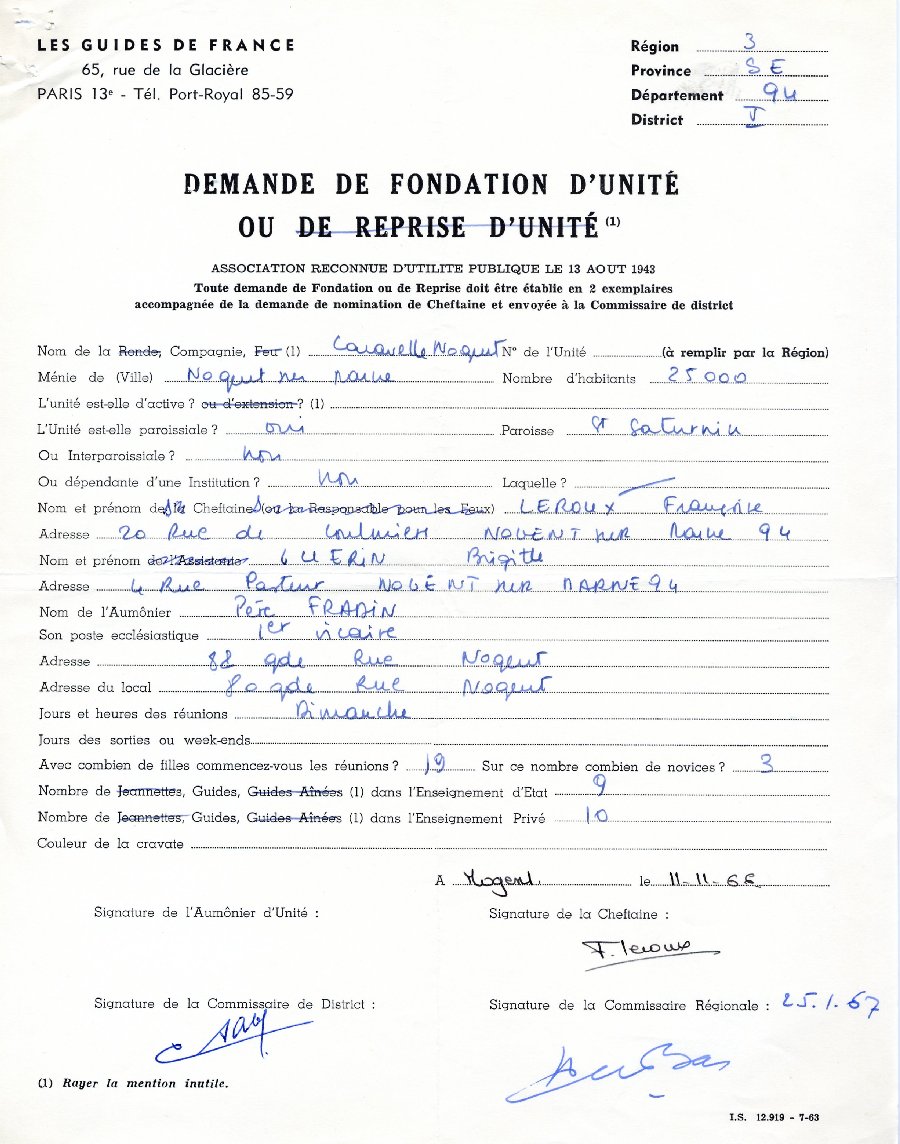 LES GUIDES DE FRANCE
65, rue de la Glacière
PARIS 13e - Tél. Port-Royal 85-59
Région 3
Province SE
Département 94
District V
DEMANDE DE FONDATION D'UNITÉ
OU DE REPRISE D'UNITÉ (1)
ASSOCIATION RECONNUE D'UTILITE PUBLIQUE LE 13 AOUT 1943
Toute demande de Fondation ou de Reprise doit être établie en 2 exemplaires
accompagnée de la demande de nomination de Cheftaine et envoyée à la Commissaire de district
Nom de la Ronde, Compagnie, Feu (1) Caravelle Nogent N° de l'Unité (à remplir par la Région)
Ménie de (Ville) Nogent sur Marne Nombre d'habitants 25000
L'unité est-elle d'active ? ou d'extension ? (1)
L'Unité est-elle paroissiale ? oui Paroisse St Saturnin
Ou Interparoissiale ? non
Ou dépendante d'une Institution ? non Laquelle ?
Nom et prénom Cheftaine (ou la Responsable pour les Feux) LEROUX Françoise
Adresse 20 Rue de NOGENT sur Marne 94
Nom et prénom de l'Assistante GUERIN Brigitte
Adresse 4 Rue Pasteur NOGENT sur MARNE 94
Nom de l'Aumônier Père FRADIN
Son poste ecclésiastique 1er vicaire
Adresse 88 gde Rue Nogent
Adresse du local 80 gde Rue Nogent
Jours et heures des réunions Dimanche
Jours des sorties ou week-ends
Avec combien de filles commencez-vous les réunions ? 19 Sur ce nombre combien de novices ? 3
Nombre de Jeannettes, Guides, Guides Aînées (1) dans l'Enseignement d'Etat 9
Nombre de Jeannettes, Guides, Guides Aînées (1) dans l'Enseignement Privé 10
Couleur de la cravate
A Nogent le 11-11-66
Signature de l'Aumônier d'Unité :
Signature de la Cheftaine :
F. Leroux
Signature de la Commissaire de District :
Signature de la Commissaire Régionale : 25.1.67
(1) Rayer la mention inutile.
I.S. 12.919 - 7-63